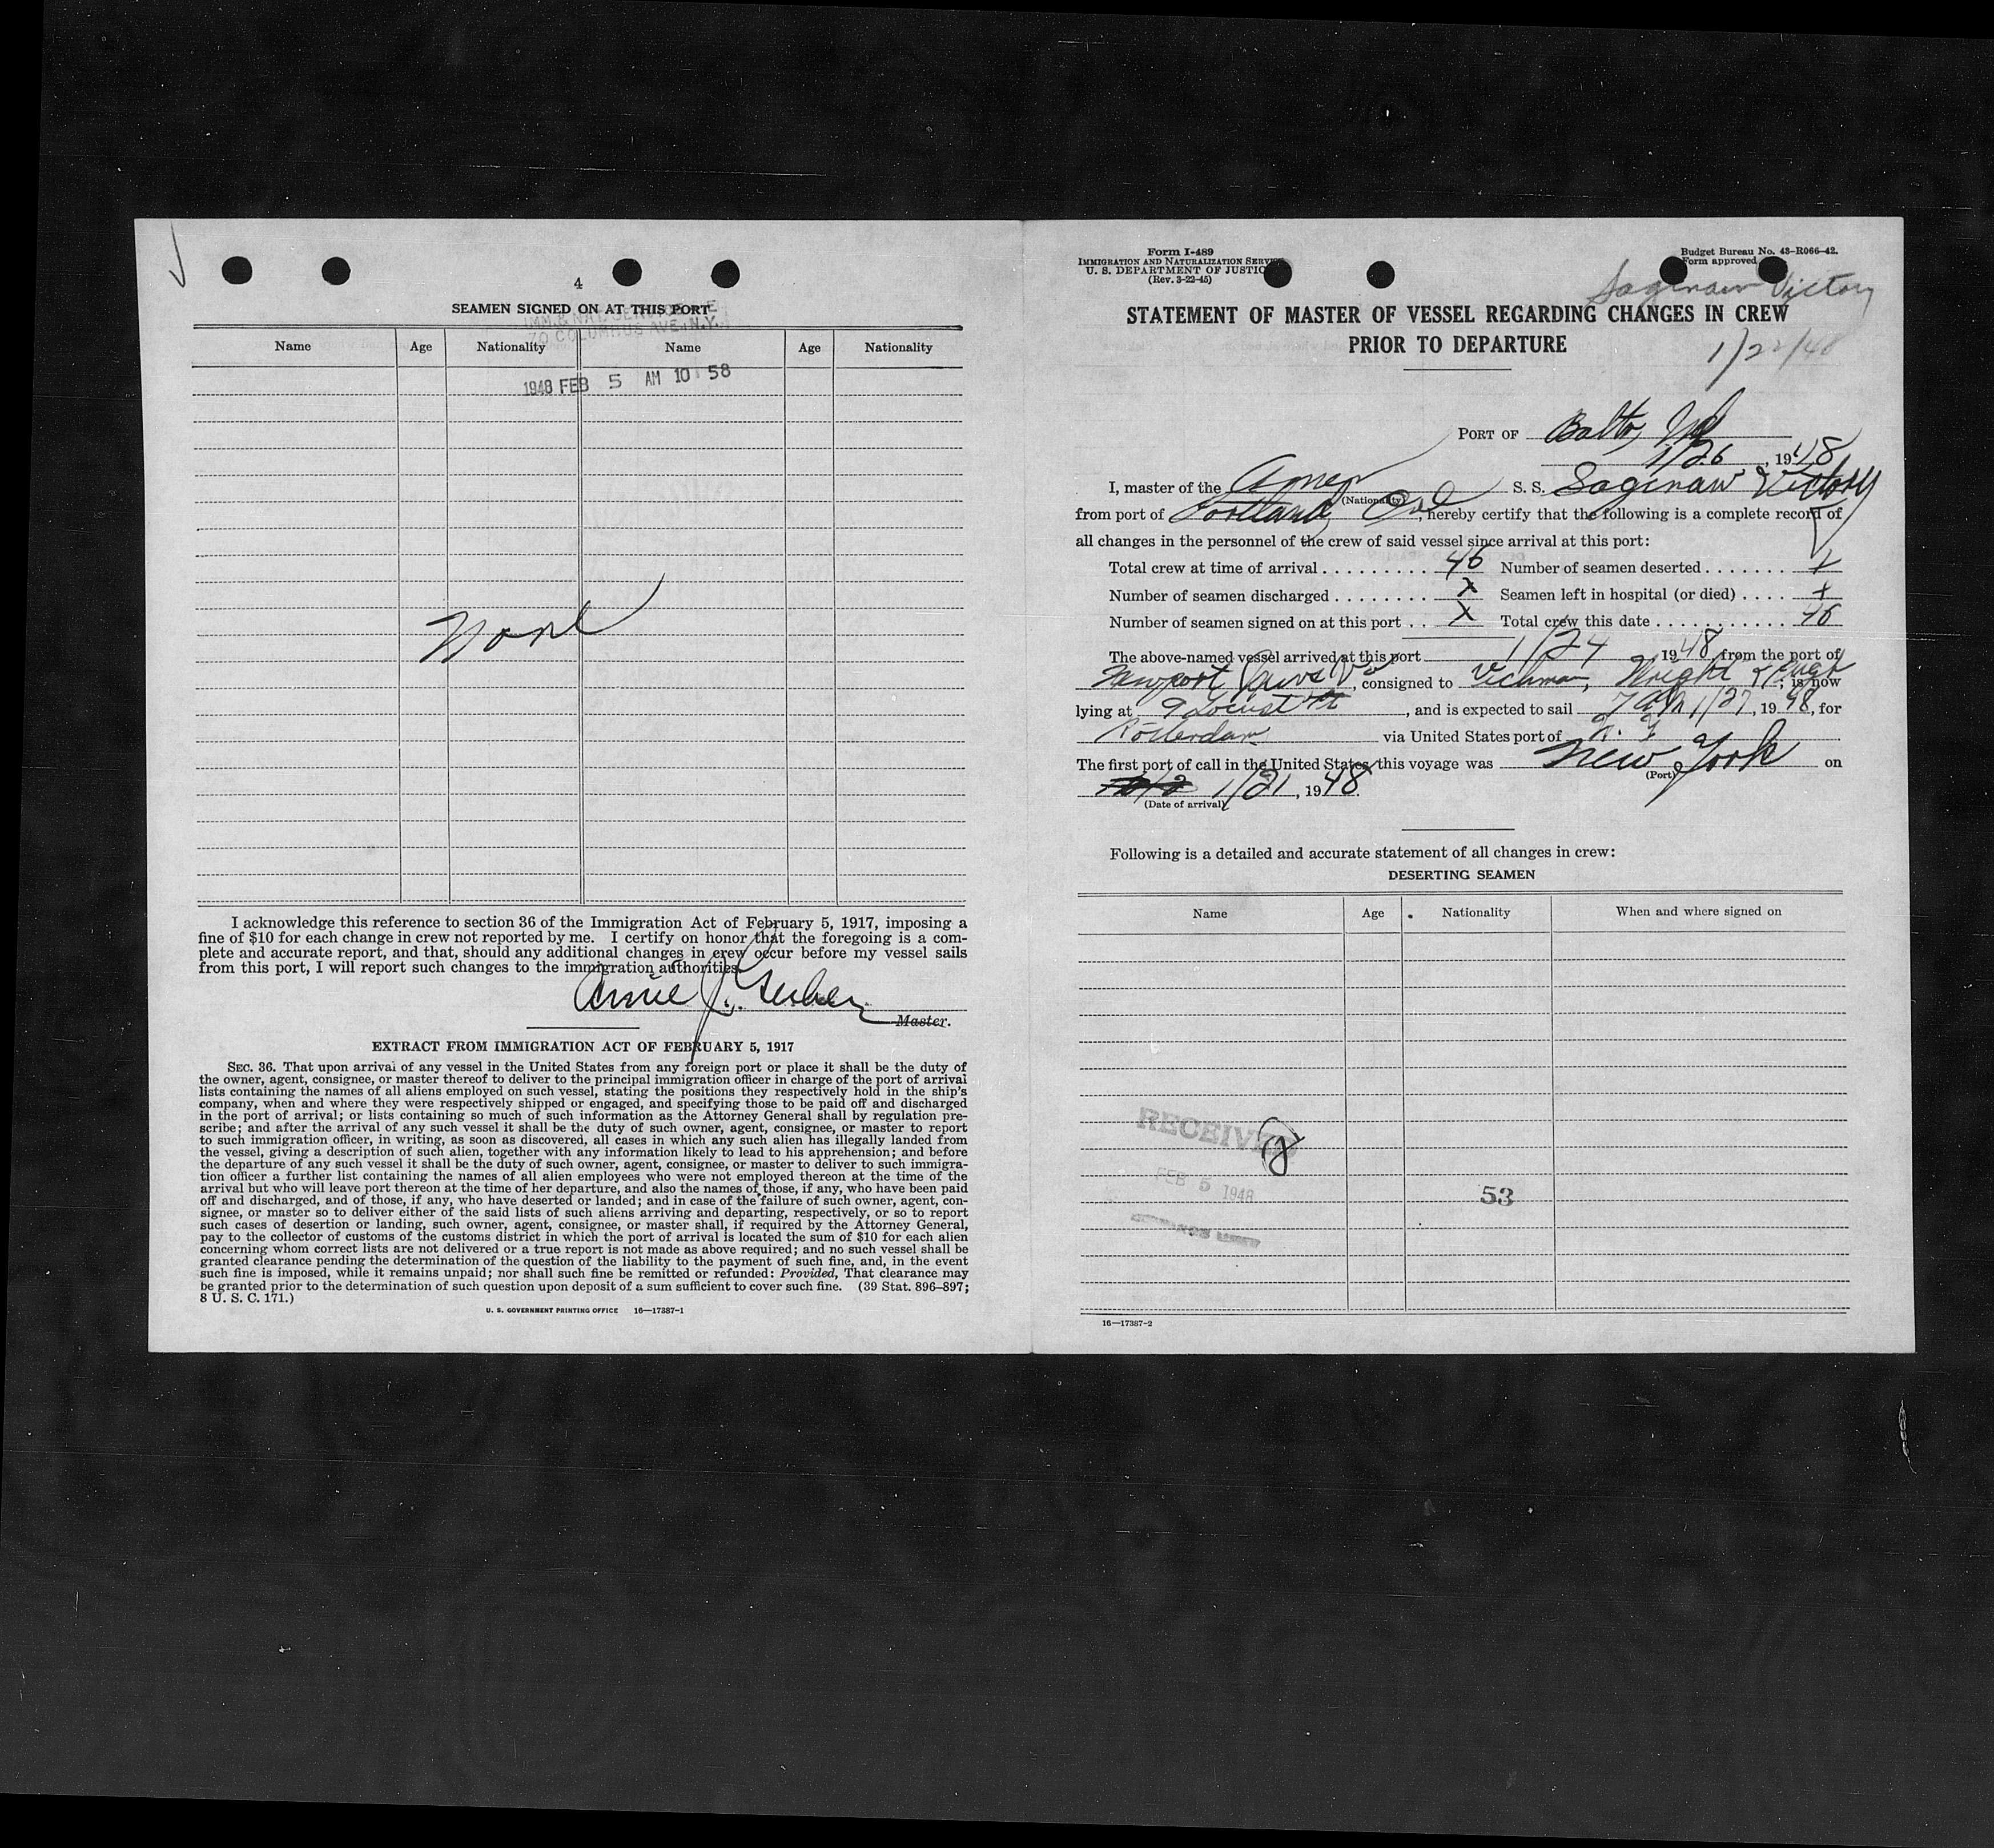 4
SEAMEN SIGNED ON AT THIS PORT
IMM. & NAT. SERVICE
70 COLUMBUS AVE. N.Y.
Name Age Nationality Name Age Nationality
1948 FEB 5 AM 10 58
None
I acknowledge this reference to section 36 of the Immigration Act of February 5, 1917, imposing a
fine of $10 for each change in crew not reported by me. I certify on honor that the foregoing is a com-
plete and accurate report, and that, should any additional changes in crew occur before my vessel sails
from this port, I will report such changes to the immigration authorities.
Master.
EXTRACT FROM IMMIGRATION ACT OF FEBRUARY 5, 1917
SEC. 36. That upon arrival of any vessel in the United States from any foreign port or place it shall be the duty of
the owner, agent, consignee, or master thereof to deliver to the principal immigration officer in charge of the port of arrival
lists containing the names of all aliens employed on such vessel, stating the positions they respectively hold in the ship's
company, when and where they were respectively shipped or engaged, and specifying those to be paid off and discharged
in the port of arrival; or lists containing so much of such information as the Attorney General shall by regulation pre-
scribe; and after the arrival of any such vessel it shall be the duty of such owner, agent, consignee, or master to report
to such immigration officer, in writing, as soon as discovered, all cases in which any such alien has illegally landed from
the vessel, giving a description of such alien, together with any information likely to lead to his apprehension; and before
the departure of any such vessel it shall be the duty of such owner, agent, consignee, or master to deliver to such immigra-
tion officer a further list containing the names of all alien employees who were not employed thereon at the time of the
arrival but who will leave port thereon at the time of her departure, and also the names of those, if any, who have been paid
off and discharged, and of those, if any, who have deserted or landed; and in case of the failure of such owner, agent, con-
signee, or master so to deliver either of the said lists of such aliens arriving and departing, respectively, or so to report
such cases of desertion or landing, such owner, agent, consignee, or master shall, if required by the Attorney General,
pay to the collector of customs of the customs district in which the port of arrival is located the sum of $10 for each alien
concerning whom correct lists are not delivered or a true report is not made as above required; and no such vessel shall be
granted clearance pending the determination of the question of the liability to the payment of such fine, and, in the event
such fine is imposed, while it remains unpaid; nor shall such fine be remitted or refunded: Provided, That clearance may
be granted prior to the determination of such question upon deposit of a sum sufficient to cover such fine. (39 Stat. 896-897;
8 U. S. C. 171.)
U. S. GOVERNMENT PRINTING OFFICE 16—17387-1
Form I-489
IMMIGRATION AND NATURALIZATION SERVICE
U. S. DEPARTMENT OF JUSTICE
(Rev. 3-22-45)
Budget Bureau No. 43-R066-42.
Form approved
Saginaw Victory
STATEMENT OF MASTER OF VESSEL REGARDING CHANGES IN CREW
PRIOR TO DEPARTURE
1/22/48
PORT OF Balto, Md
1/26, 1948
I, master of the Amer S. S. Saginaw Victory
(Nationality)
from port of Portland, Ore, hereby certify that the following is a complete record of
all changes in the personnel of the crew of said vessel since arrival at this port:
Total crew at time of arrival 46 Number of seamen deserted x
Number of seamen discharged X Seamen left in hospital (or died) x
Number of seamen signed on at this port X Total crew this date 46
The above-named vessel arrived at this port 1/24 1948, from the port of
Newport News Va, consigned to Vichman, Wright & Pugh, is now
lying at 9 Locust Pt, and is expected to sail 7 AM 1/27, 1948, for
Rotterdam via United States port of N. Y.
The first port of call in the United States this voyage was New York on
(Port)
1/21, 1948.
(Date of arrival)
Following is a detailed and accurate statement of all changes in crew:
DESERTING SEAMEN
Name Age Nationality When and where signed on
RECEIVED
FEB 5 1948
53
16—17387-2